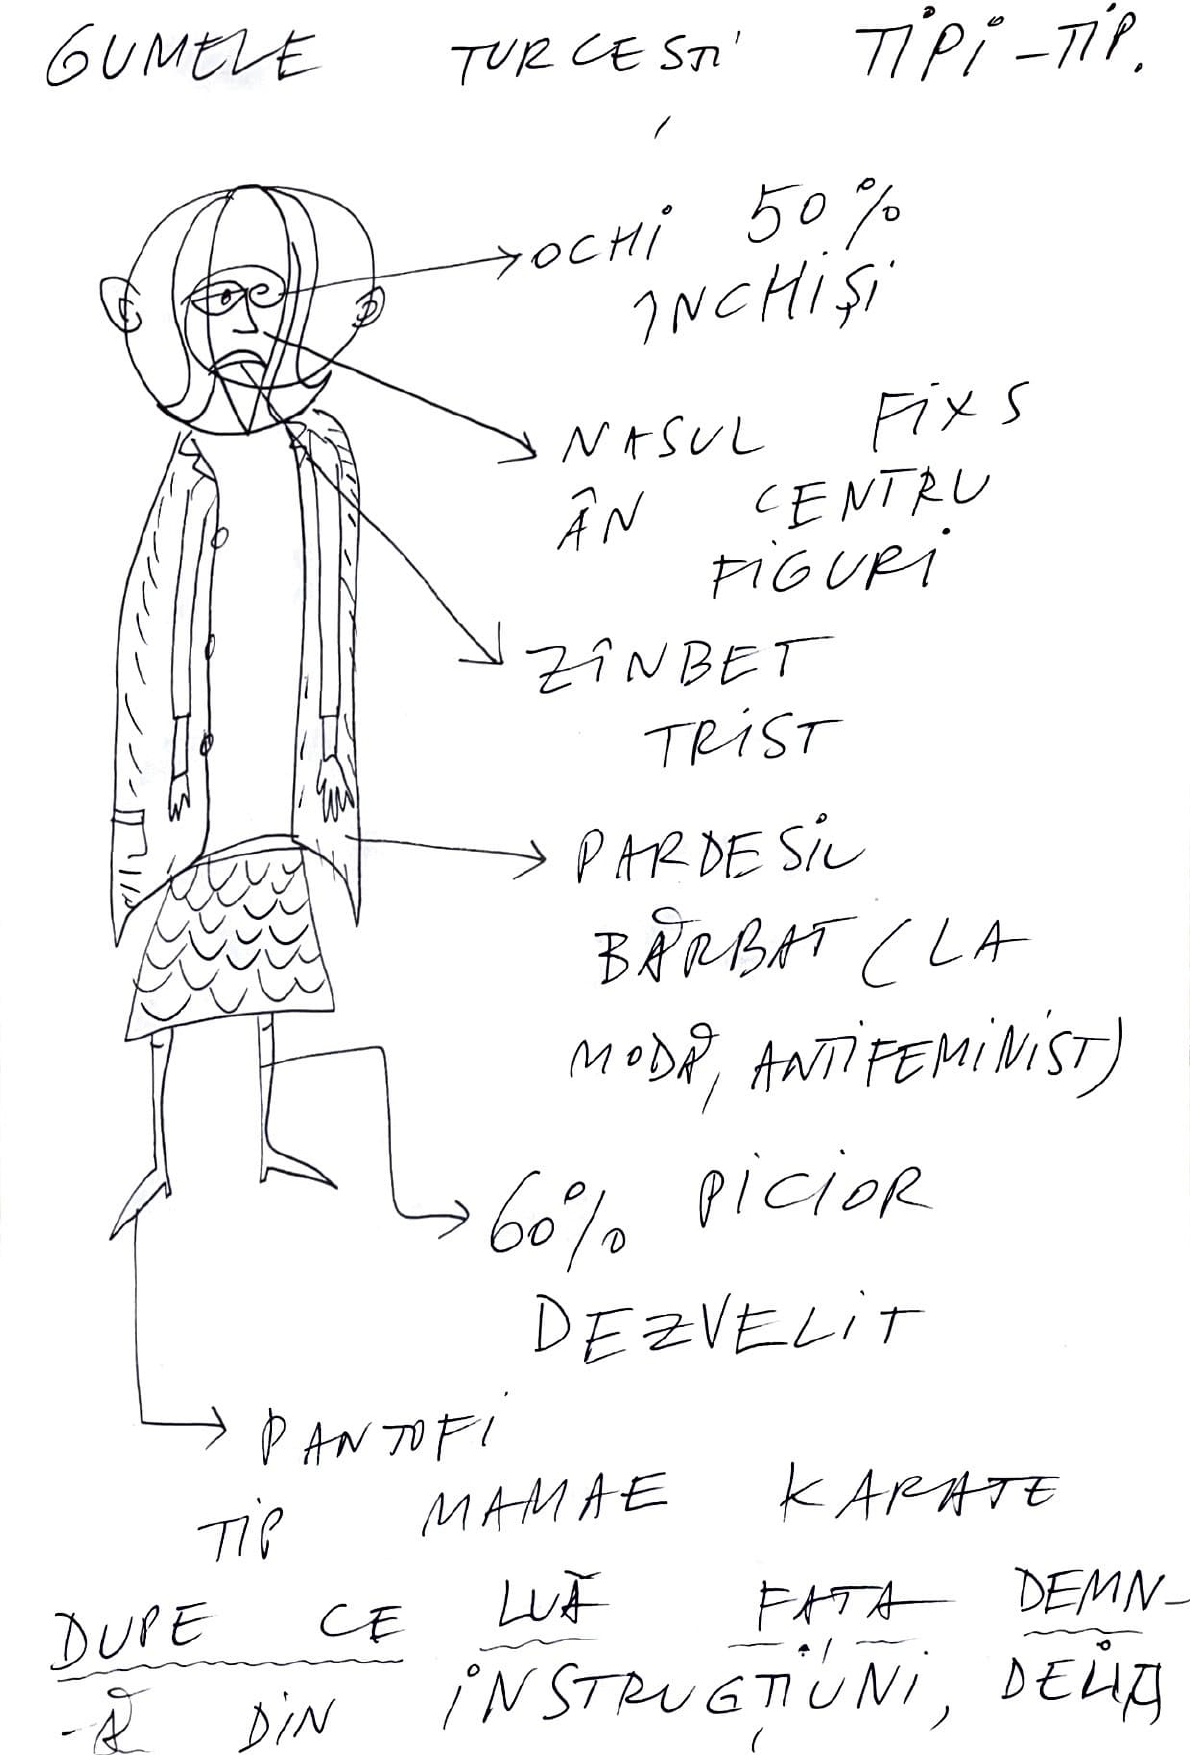 GUMELE TURCESTI TIPI-TIP.
OCHI 50%
ÎNCHIȘI
NASUL FIXS
ÂN CENTRU
FIGURI
ZÎNBET
TRIST
PARDESIU
BĂRBAT (LA
MODĂ, ANTIFEMINIST)
60% PICIOR
DEZVELIT
PANTOFI
TIP MAMAE KARATE
DUPE CE LUĂ FATA DEMN-
-Ă DIN INSTRUGȚIUNI,